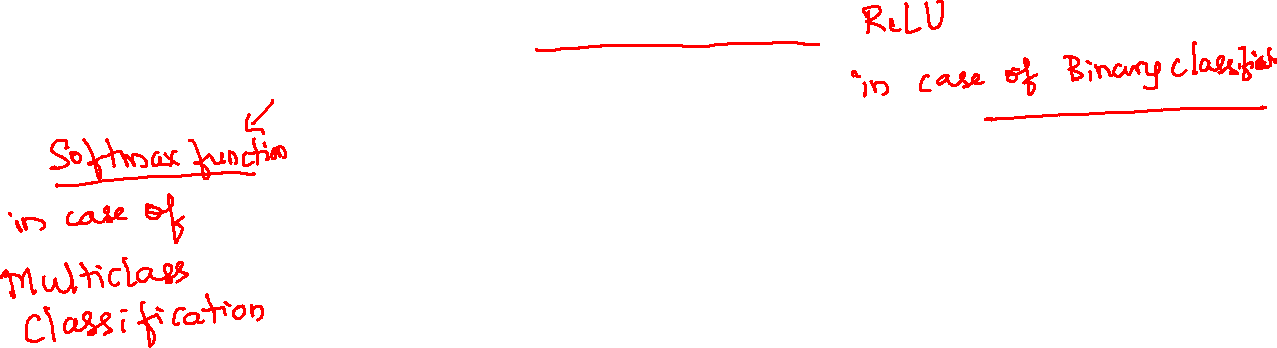 ReLU
in case of Binary classificat
Softmax function
in case of
Multiclass
Classification